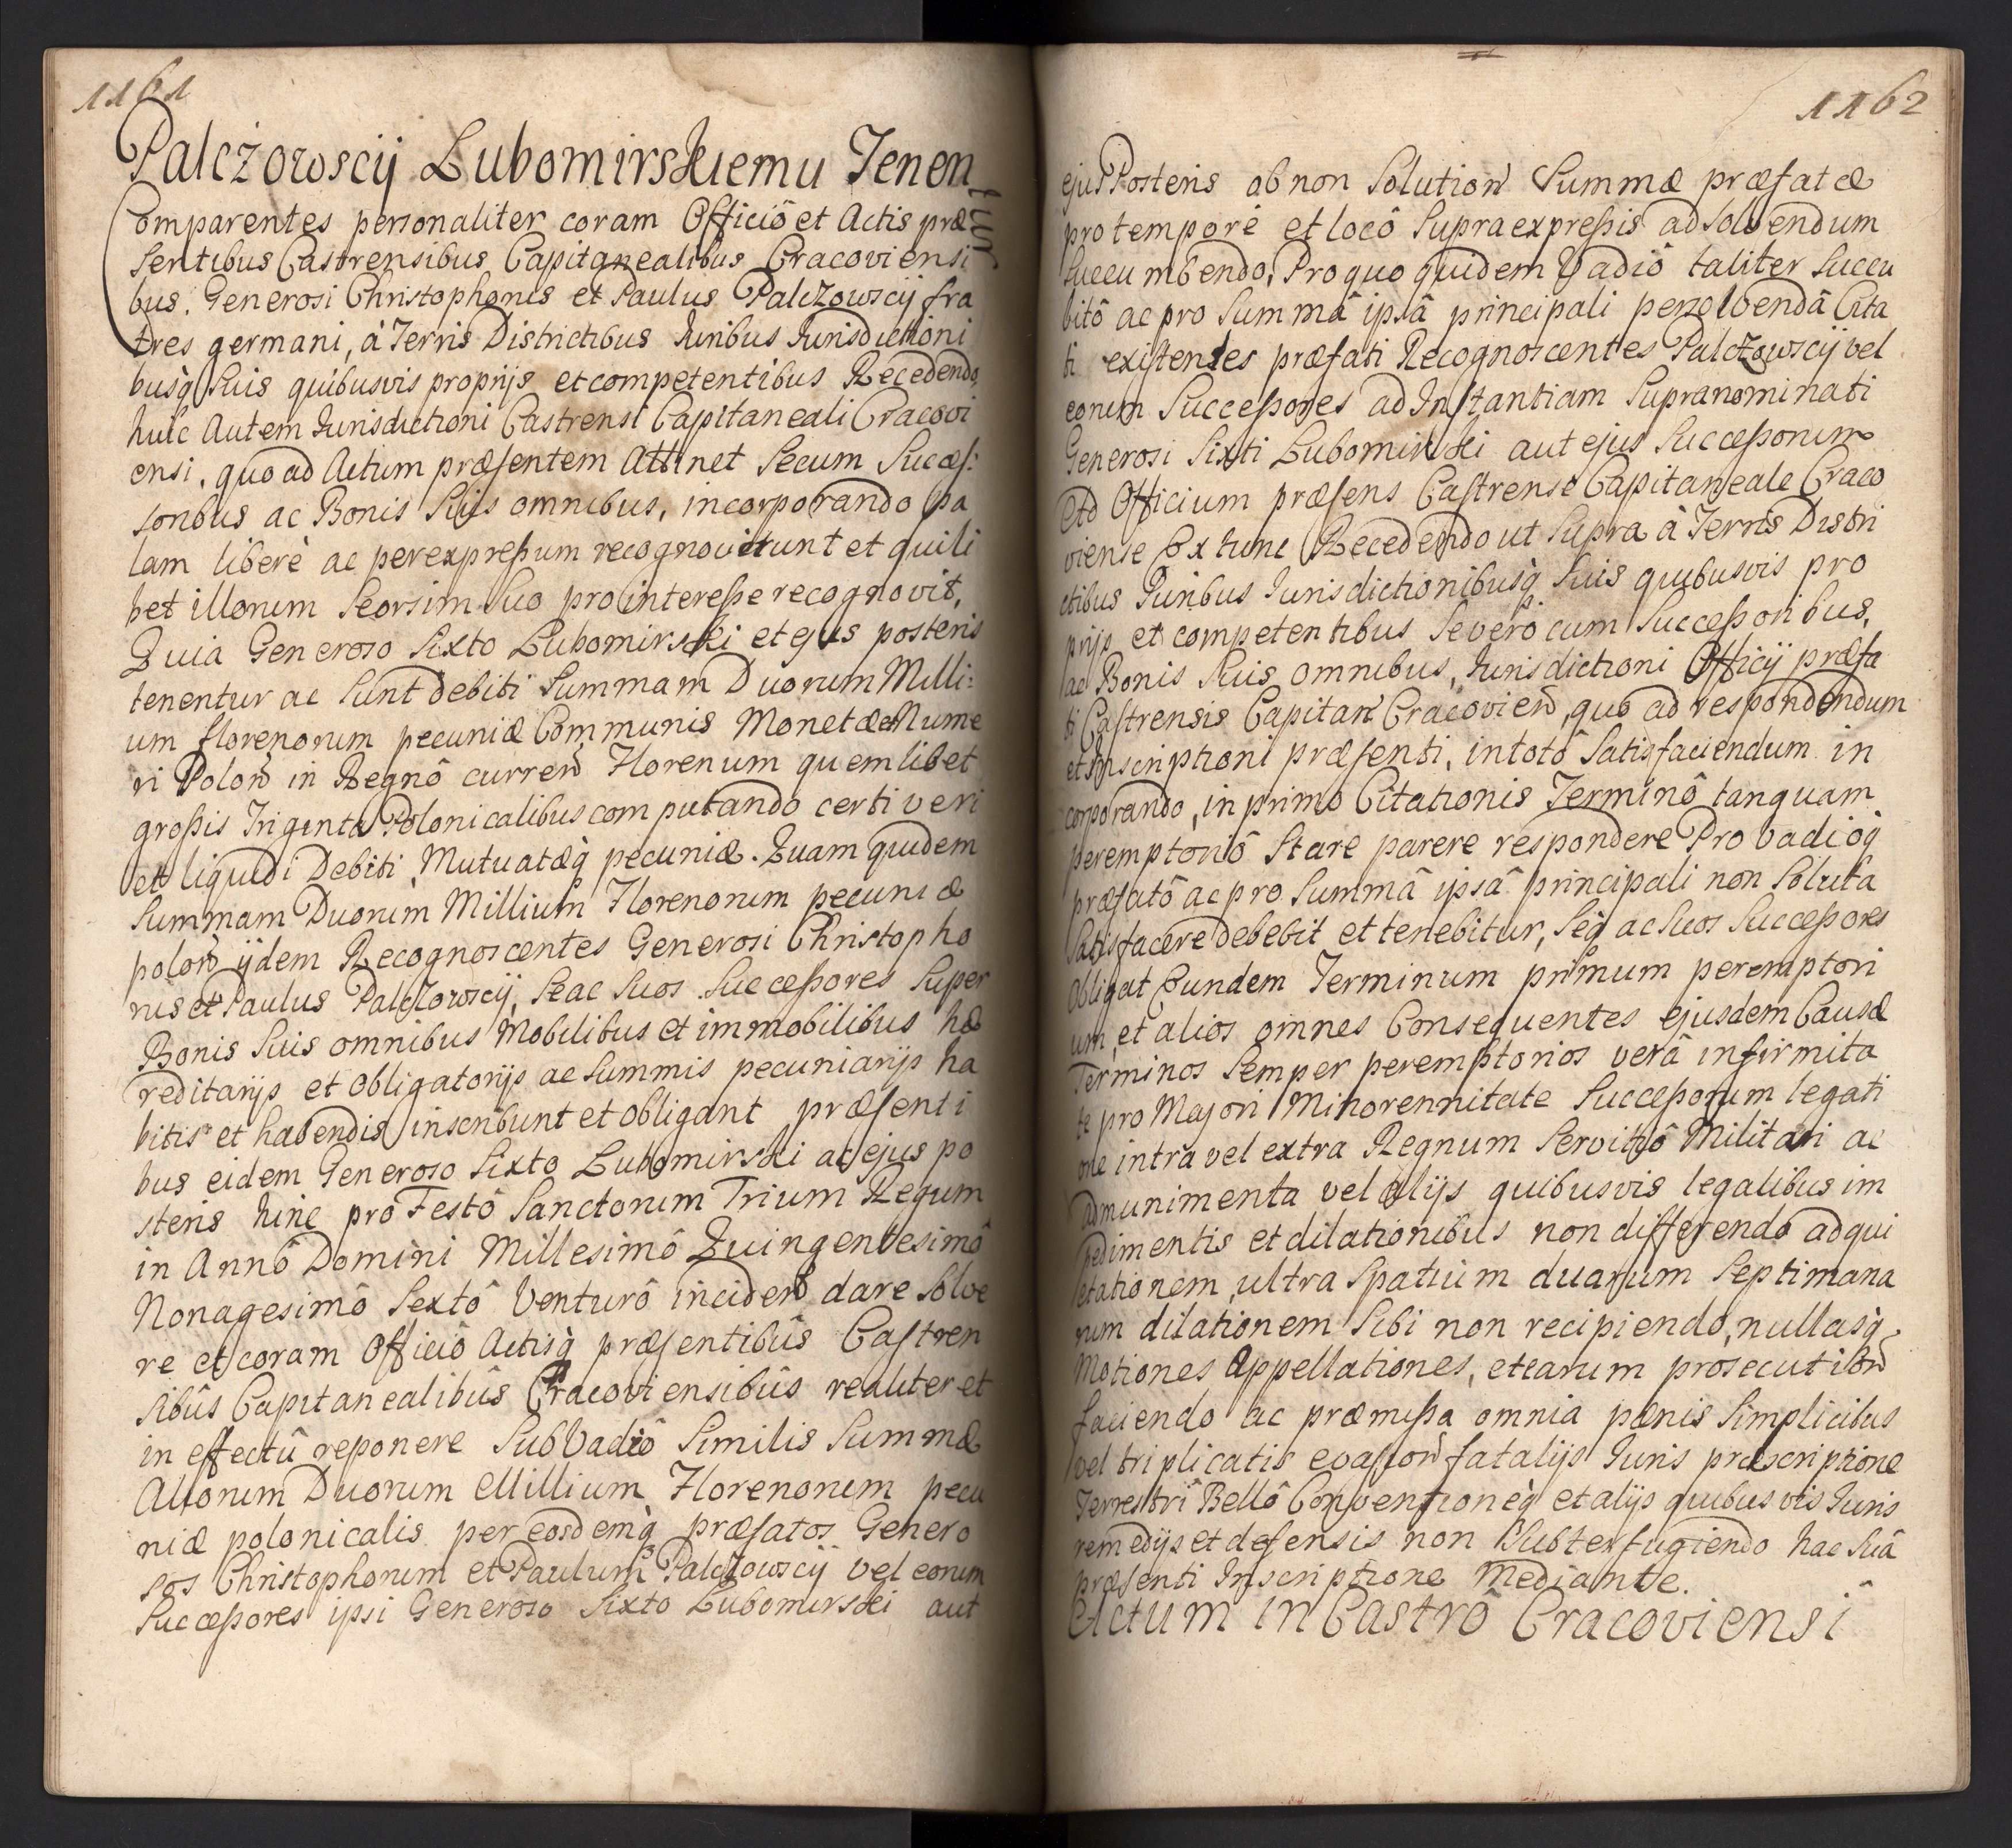 1161
Palczowscij Lubomirskiemu Tenen
tur
Comparentes personaliter coram Officiô et Actis præ
sentibus Castrensibus Capitanealibus Cracoviensi
bus. Generosi Christophorus et Paulus Palczowscij fra
tres germani, à Terris Districtibus Iuribus Iurisdictioni
busq̀ suis quibusvis proprijs et competentibus Recedendo,
huic Autem Iurisdictioni Castrensi Capitaneali Cracovi
ensi, quo ad Actum præsentem Attinet Secum Succes:
soribus ac Bonis Suis omnibus, incorporando pa
lam liberè ac per expressum recognoverunt et quili
bet illorum Seorsim Suo pro interesse recognovit,
Quia Generoso Sixto Lubomirski et ejus posteris
tenentur ac Sunt debiti Summam Duorum Milli:
um florenorum pecuniæ Communis Monetæ Nume
ri Polon̄ in Regnô curren̄ Florenum quemlibet
grossis Triginta Polonicalibus computando certi veri
et liquidi Debiti Mutuatæq̀ pecuniæ. Quam quidem
Summam Duorum Millium Florenorum pecuniæ
polon̄ ijdem Recognoscentes Generosi Christopho
rus et Paulus Palczowscij, Se ac Suos Successores Super
Bonis Suis omnibus Mobilibus et immobilibus hæ
reditarijs et obligatorijs ac Summis pecuniarijs ha
bitis et habendis inscribunt et obligant præsenti
bus eidem Generoso Sixto Lubomirski ac ejus po
steris hinc pro Festô Sanctorum Trium Regum
in Annô Domini Millesimô Quingentesimô
Nonagesimô Sextô Venturô inciden̄ dare Solve
re et coram Officiô Actisq̀ præsentibûs Castren
sibûs Capitanealibûs Cracoviensibûs realiter et
in effectû reponere Sub Vadiô Similis Summæ
Aliorum Duorum Millium Florenorum pecu
niæ polonicalis per eosdemq̀ præfatos Genero
sos Christophorum et Paulum Palczowscij vel eorum
Successores ipsi Generoso Sixto Lubomirski aut
1162
ejus Posteris ob non Solution̄ Summæ præfatæ
pro temporè et locô Supra expressis ad Solvendum
Succumbendo, Pro quo quidem Vadiô taliter Succu
bitô ac pro Summâ ipsâ principali persolvendâ Cita
ti existentes præfati Recognoscentes Palczowscij vel
eorum Successores ad Instantiam Supranominati
Generosi Sixti Lubomirski aut ejus Successorum
Ad Officium præsens Castrense Capitaneale Craco
viense Ex tunc Recedendo ut Supra à Terris Distri
ctibus Iuribus Iurisdictionibusq̀ Suis quibusvis pro
prijs et competentibus Severò cum Successoribus,
ac Bonis Suis omnibus, Iurisdictioni Officij præfa
ti Castrensis Capitan̄ Cracovien̄, quo ad respondendum
et Inscriptioni præsenti, in totô Satisfaciendum in
corporando, in primo Citationis Terminô tanquam
peremptoriô Stare parere respondere Pro Vadioq̀
præfatô ac pro Summâ ipsâ principali non Soluta
Satisfacere debebit et tenebitur, Seq̀ ac Suos Successores
Obligat Eundem Terminum primum peremptori
um, et alios omnes Consequentes ejusdem Causæ
Terminos Semper peremptorios verâ infirmita
te pro Majori Minorennitate Successorum legati
one intra vel extra Regnum Servitiô Militari ac
admunimenta vel alijs quibusvis legalibus im
pedimentis et dilationibus non differendo ad qui
etationem, ultra Spatium duarum Septimana
rum dilationem Sibi non recipiendo, nullasq̀
Motiones Appellationes, et earum prosecution̄
faciendo ac præmissa omnia pœnis Simplicibus
vel triplicatis evasion̄ fatalijs Iuris præscriptione
Terrestri Bellô Conventioneq̀ et alijs quibusvis Iuris
remedijs et defensis non Subterfugiendo hac Suâ
præsenti Inscriptione Mediante.
Actum in Castrô Cracoviensi